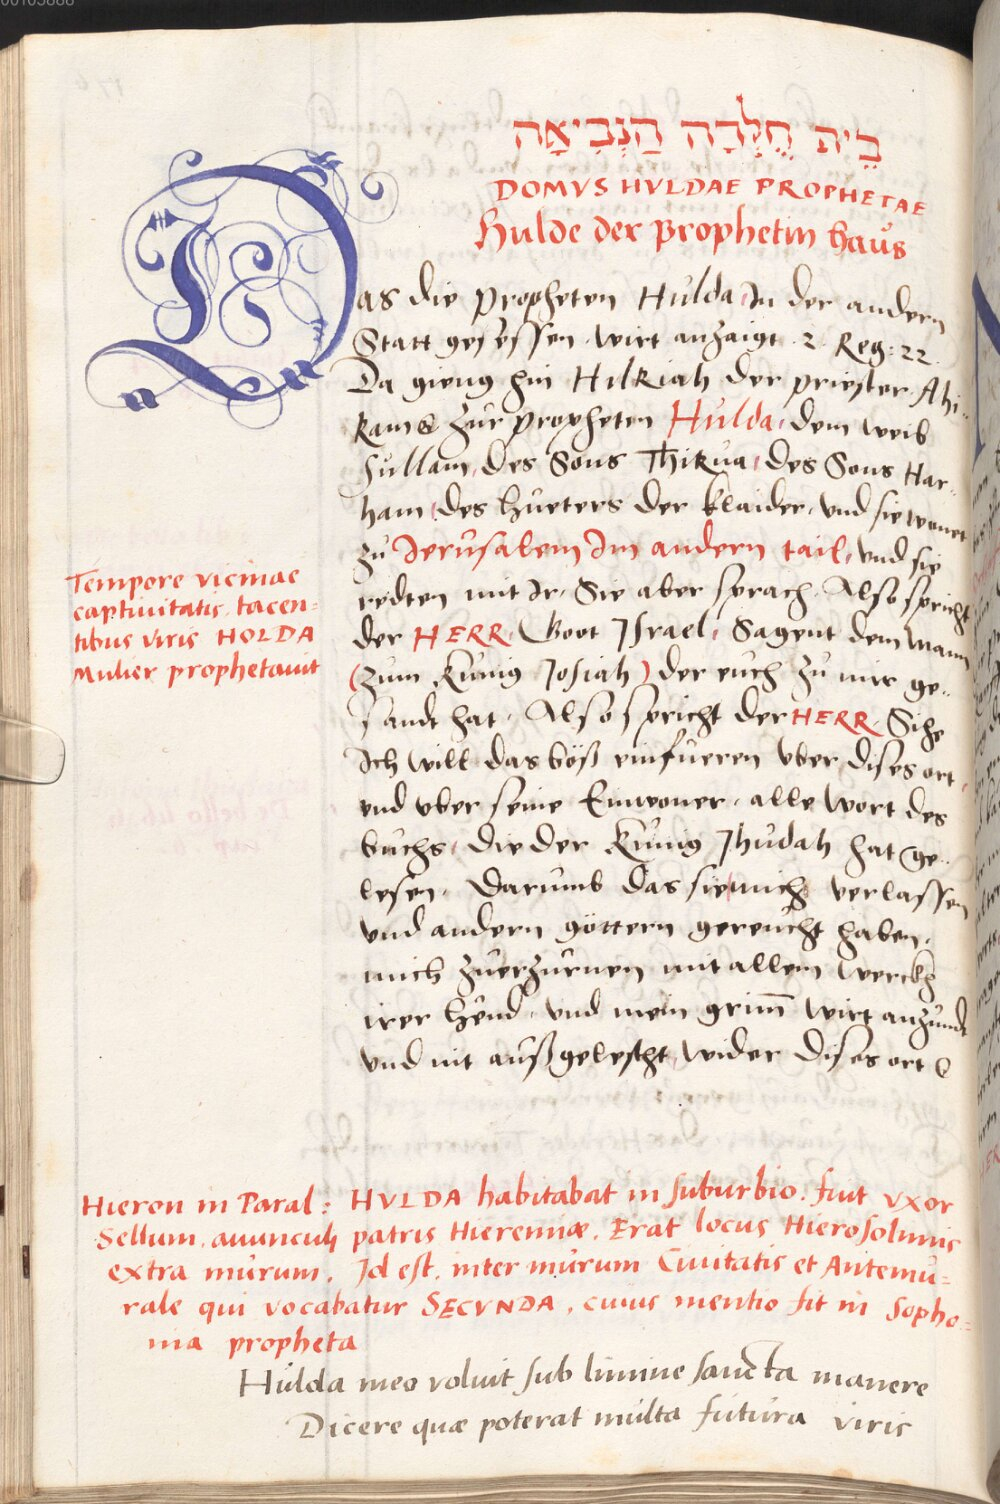 בֵּית חֻלְדָּה הַנְּבִיאָה
DOMVS HVLDAE PROPHETAE
Hulde der Prophetin haus
Das die Propheten Hulda, In der andern
Statt gesessen, wirt anzaigt. 2. Reg: 22.
Da gieng hin Hilkiah der priester Ahi-
kam & zur Propheten Hulda, dem weib
Sullam, des Sons Thikua, des Sons Har-
ham, des hüeters der klaider, und sie wonet
zu Jerusalem Im andern tail, und sie
redten mit Ir, Sie aber sprach, Also spricht
der HERR, Goot Israel, Sagent dem Mann
(zum Künig Josiah) der euch zu mir ge-
sandt hat, Also spricht der HERR, Sihe
Ich will das böß einfüeren vber dises ort,
und vber seine Einwoner, alle wort des
buchs, die der Künig Jhudah hat ge-
lesen, Darumb das sie mich verlassen
und andern göttern gereucht haben,
mich zuerzürnen mit allem werckh
irer hend, und mein grim̄ wirt anzundt
und nit außgelescht, wider dises ort
Tempore vicinae
captivitatis, tacen-
tibus viris HOLDA
Mulier prophetavit
Hieron in Paral: HVLDA habitabat in suburbio. fuit vxor
Sellum, avunculi patris Hieremiæ. Erat locus Hierosolimis
extra murum, Id est, inter murum Civitatis et Antemu-
rale qui vocabatur SECVNDA, cuius mentio fit in Sopho-
nia propheta
Hulda meo voluit sub limine sancta manere
Dicere quæ poterat multa futura viris